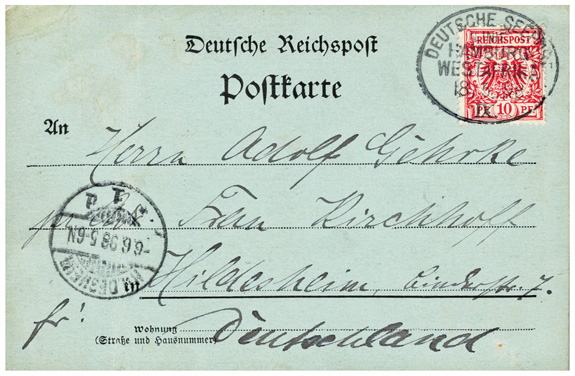 Deutsche Reichspost
Postkarte
DEUTSCHE SEEPOST
HAMBURG
WESTAFRIKA
REICHSPOST
PF. 10 PF.
An
Herrn Adolf Gehrke
Frau Kirchhoff
in Hildesheim,
fr!
Wohnung
(Straße und Hausnummer)
Deutschland
HILDESHEIM
-6.6.98.5-6N